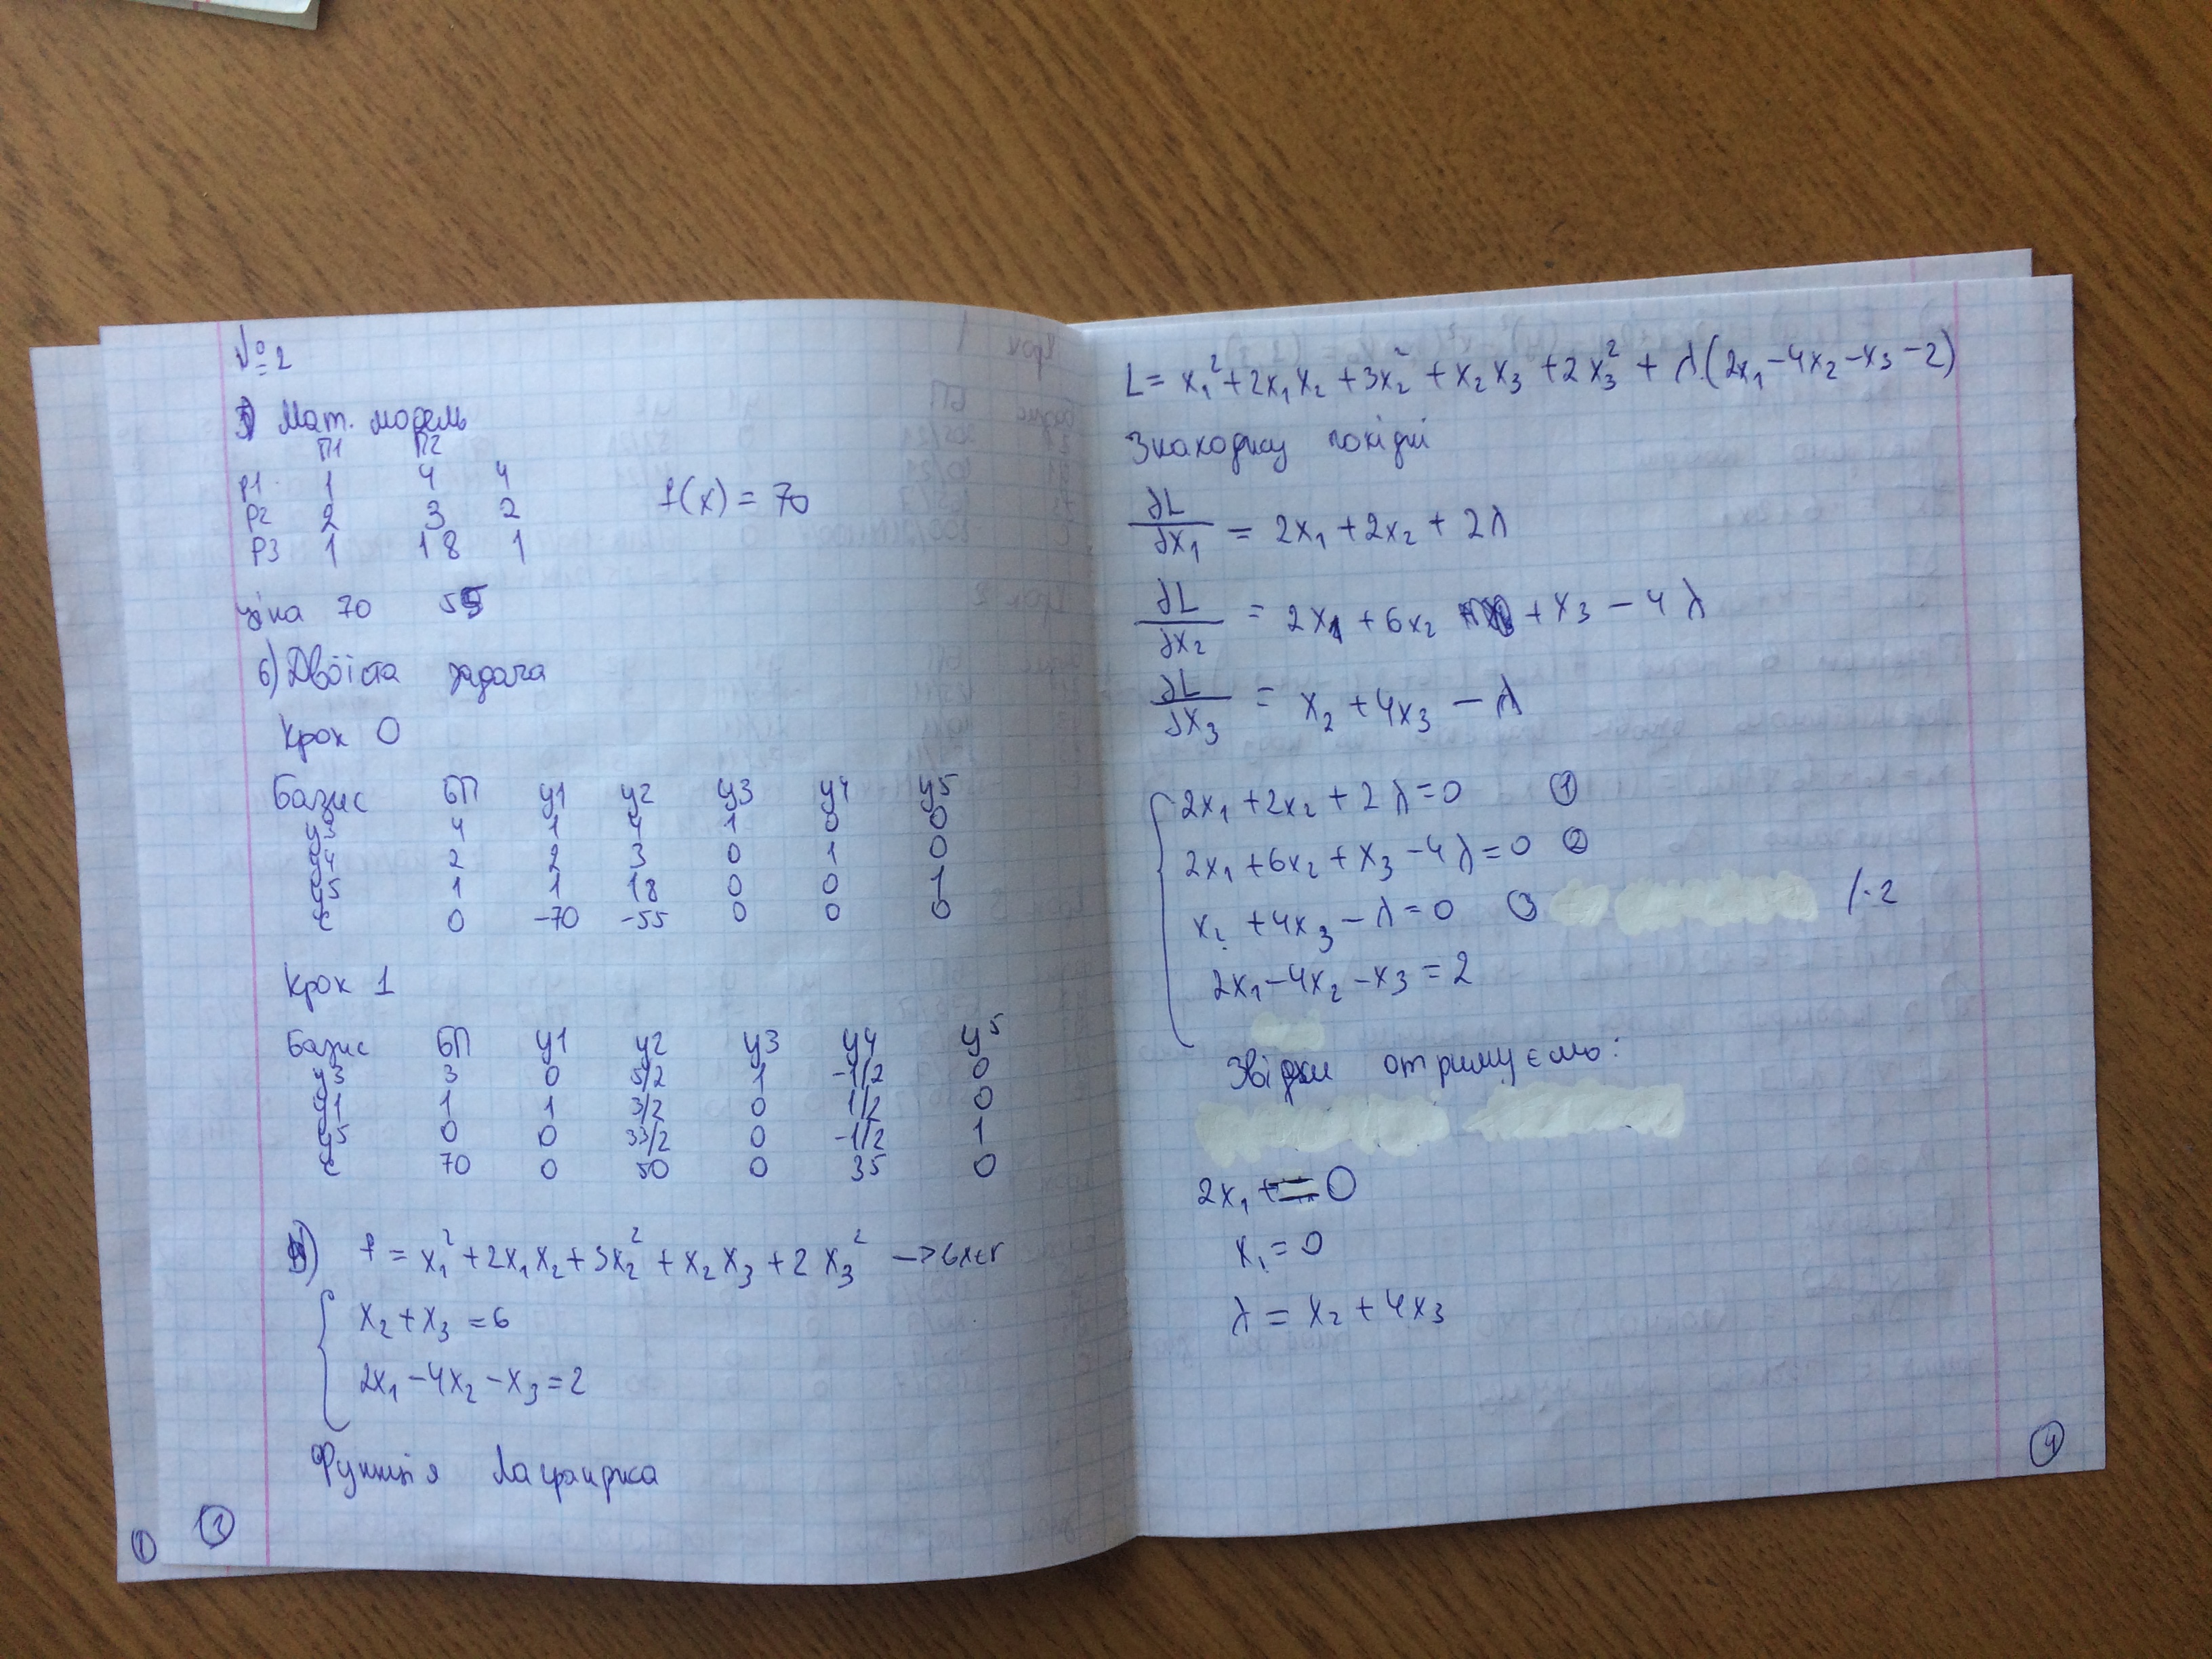 №2
Мат. модель
П1 П2
Р1 1 4 4
Р2 2 3 2
Р3 1 18 1
f(x) = 70
ціна 70 55
б) Двоїста задача
Крок 0
Базис БП y1 y2 y3 y4 y5
y3 4 1 4 1 0 0
y4 2 2 3 0 1 0
y5 1 1 18 0 0 1
c 0 -70 -55 0 0 0
Крок 1
Базис БП y1 y2 y3 y4 y5
y3 3 0 5/2 1 -1/2 0
y1 1 1 3/2 0 1/2 0
y5 0 0 33/2 0 -1/2 1
c 70 0 50 0 35 0
f = x₁² + 2x₁x₂ + 3x₂² + x₂x₃ + 2x₃² →extr
x₂ + x₃ = 6
2x₁ - 4x₂ - x₃ = 2
Функція Лагранжа
①
③
L = x₁² + 2x₁x₂ + 3x₂² + x₂x₃ + 2x₃² + λ(2x₁ - 4x₂ - x₃ - 2)
Знаходжу похідні
∂L/∂x₁ = 2x₁ + 2x₂ + 2λ
∂L/∂x₂ = 2x₁ + 6x₂ + x₃ - 4λ
∂L/∂x₃ = x₂ + 4x₃ - λ
2x₁ + 2x₂ + 2λ = 0 ①
2x₁ + 6x₂ + x₃ - 4λ = 0 ②
x₂ + 4x₃ - λ = 0 ③ /·2
2x₁ - 4x₂ - x₃ = 2
Звідки отримуємо:
2x₁ = 0
x₁ = 0
λ = x₂ + 4x₃
④